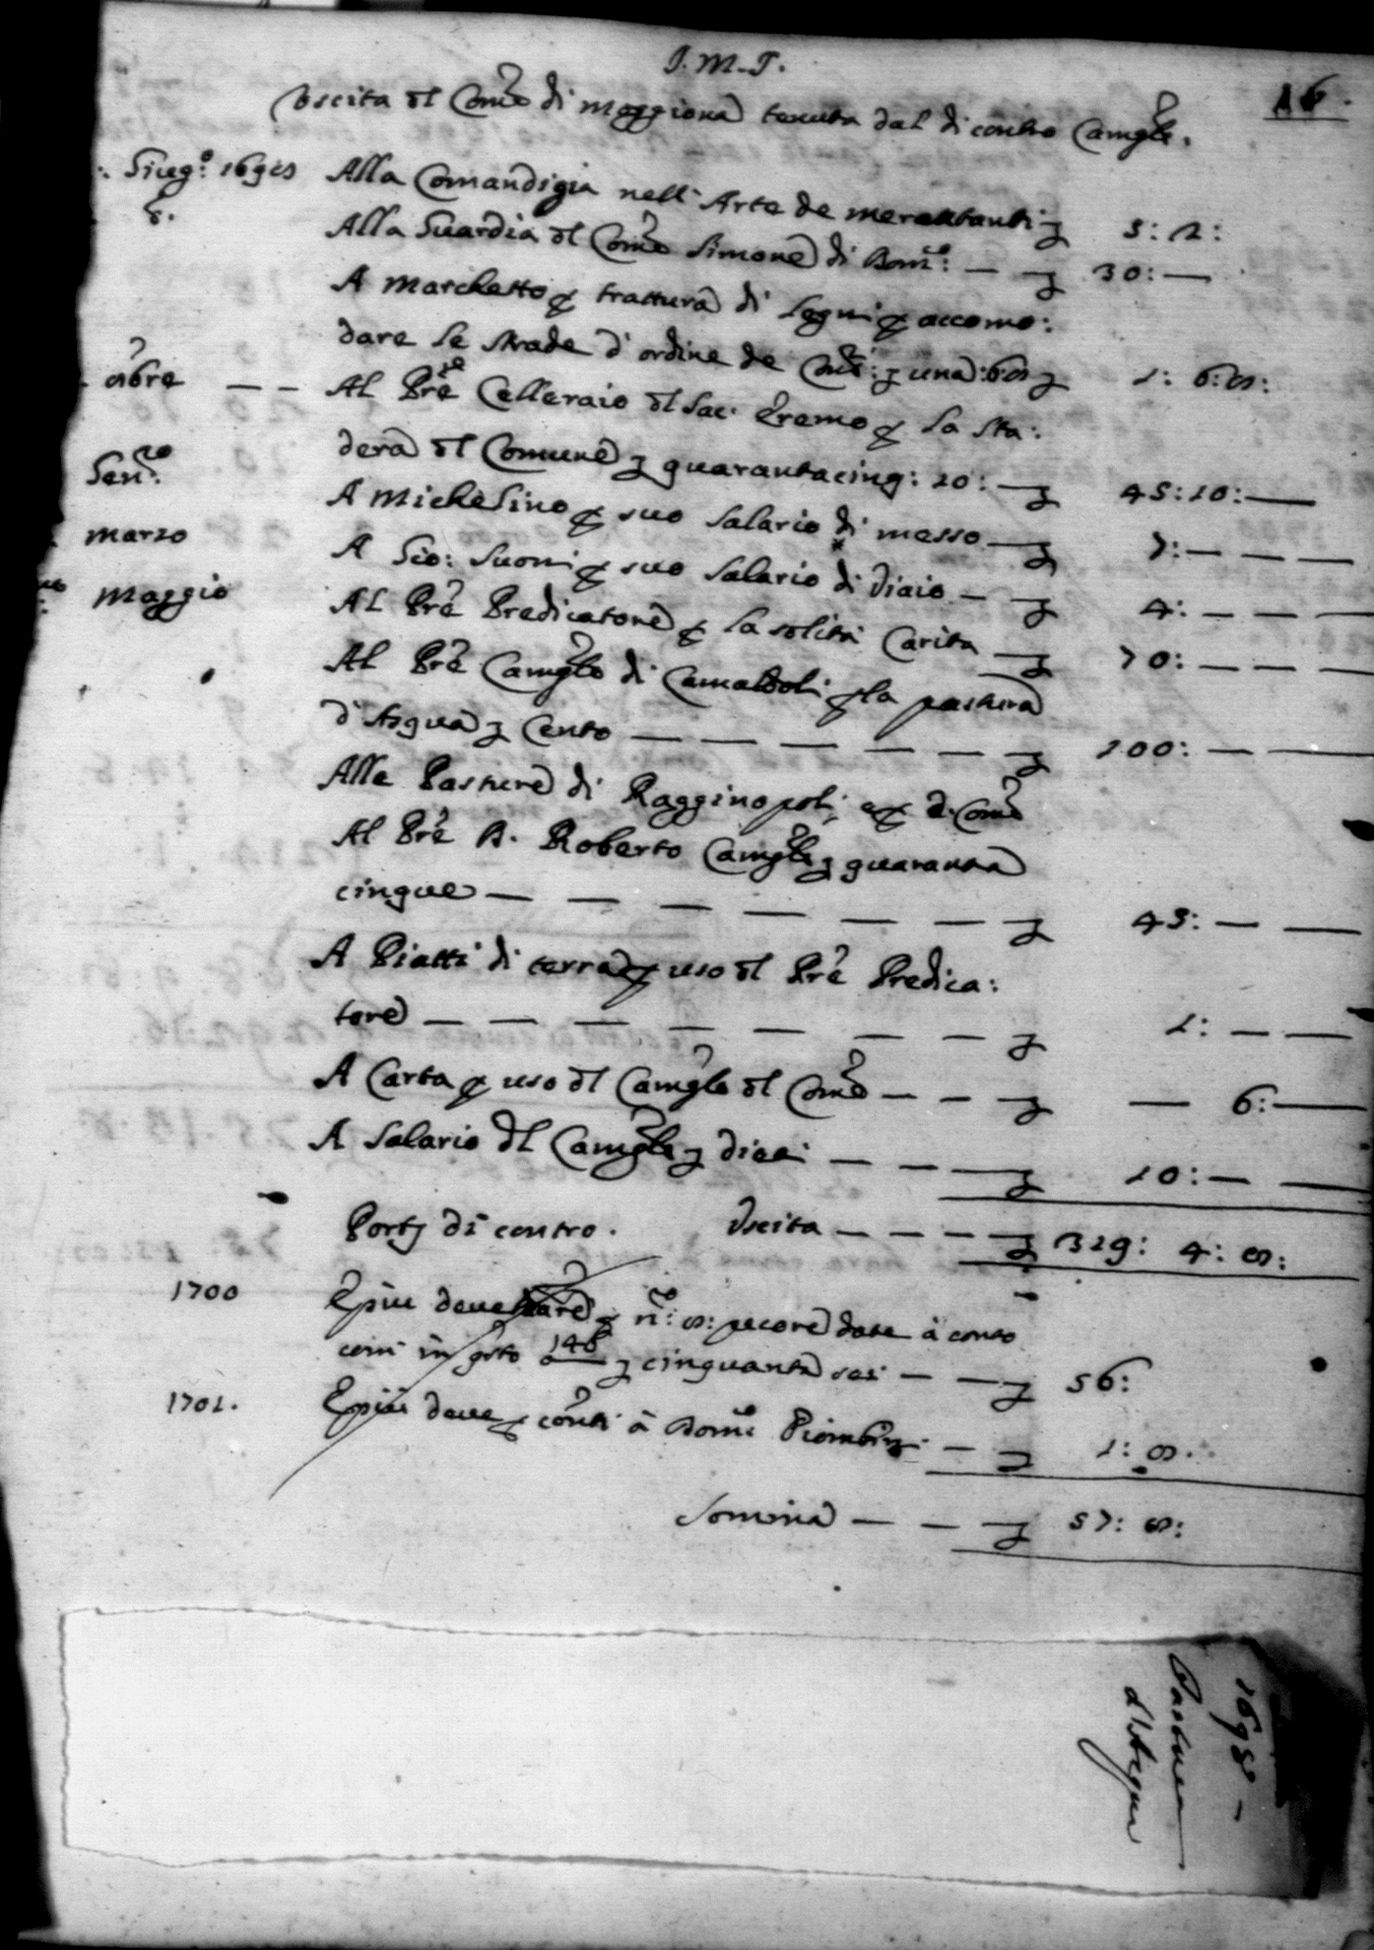 J. M. J.
16.
Uscita dl Com̃e di Moggiona tenuta dal di contro Camgło.
Giug.º 1698 Alla Comandigia nell'Arte de mercatanti 5: 12:
8. Alla Guardia dl Com̃e Simone di Dom.co: — 30: —
A Marchetto p trattura di legni p accomo:
dare le strade d'ordine de 1: 6: 8:
9bre — — Al Prẽ Celleraio dl Sac. Eremo p la sta:
dera dl Comune quarantacinq: 10: — 45: 10: —
Genn.ro A Michelino p suo salario di messo — 7: — — —
Marzo A Gio: p suo salario di viaio — 4: — — —
Maggio Al Prẽ Predicatore p la solita Carita — 70: — — —
Al Prẽ Camgło di Camaldoli p la pastura
d'Asqua Cento — — — — — — 100: — —
Alle Pasture di Ragginopoli
Al Prẽ D. Roberto Camgło quaranta
cinque — — — — — — — 45: — —
A Piatti di terra p uso dl Prẽ Predica:
tore — — — — — — — — 1: — —
A Carta p uso dl Camgło dl Com̃e — — — — 6: —
A Salario dl Camgło dieci — — — 10: — —
Porti di contro. Uscita — — — — 329: 4: 8:
1700 E più deve dare p n.º: 8: pecore date à conto
com̃ in qsto à 146 cinquanta sei — — 56:
1701. E più deve p conti à Dom.co — 1: 8.
Somma — — — 57: 8:
1698 —
Pastura
d'Asqua